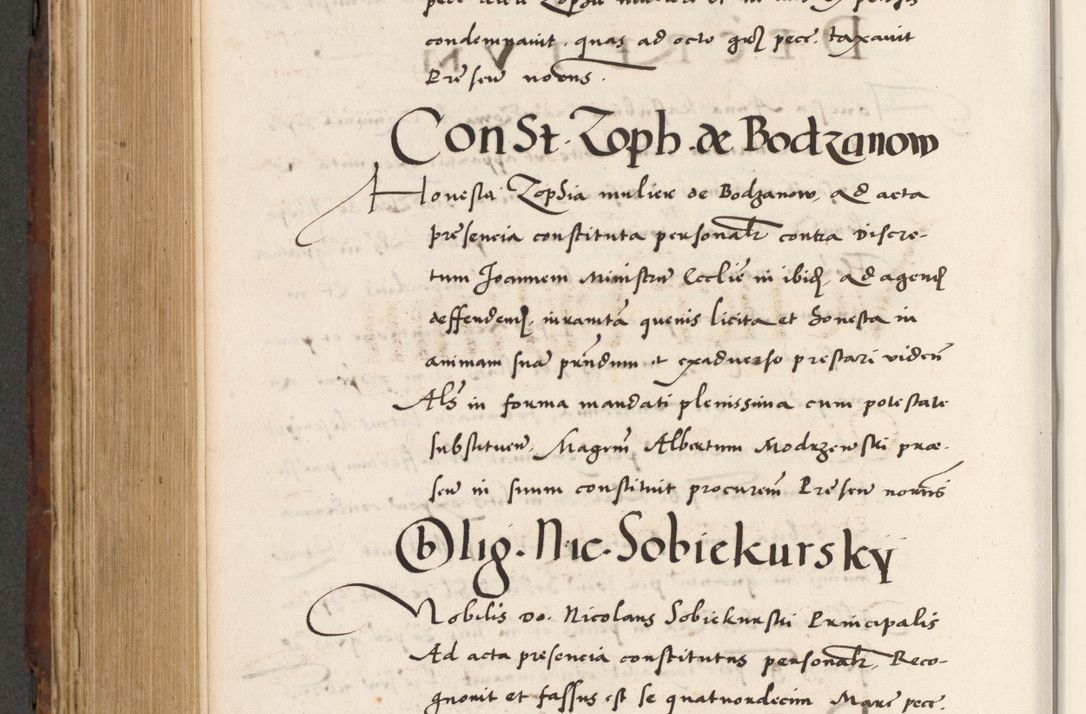 condempnauit. quas ad octo gros pecc. taxauit
Presen notus.
Const. Zoph. de Bodzanow
Honesta Zophia mulier de Bodzanow, ad acta
presencia constituta personalr contra Discre-
tum Joannem Ministru Ecclie in ibid. ad agend
deffendend. iuramta queuis licita et honesta in
animam sua prndum et exaduerso prestari viden
Als in forma mandati plenissima cum potestate
substituen, Magrm Albertum Modrzewski præ-
sen in suum constituit procurem Presen notus
Oblig. Nic. Sobiekursky
Nobilis Do. Nicolaus Sobiekurski Principalis
Ad acta presencia constitutus personalr, Reco-
gnouit et fassus est se quatuordecim Marc pecc.